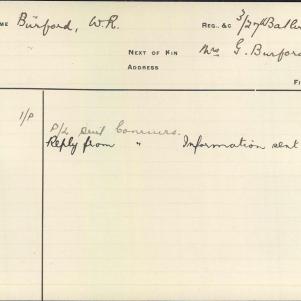 ME Burford, W.R. REG. &C 3/2nd
NEXT OF KIN Mrs G. Burford
ADDRESS
1/P
P/L sent
Reply from " Information sent